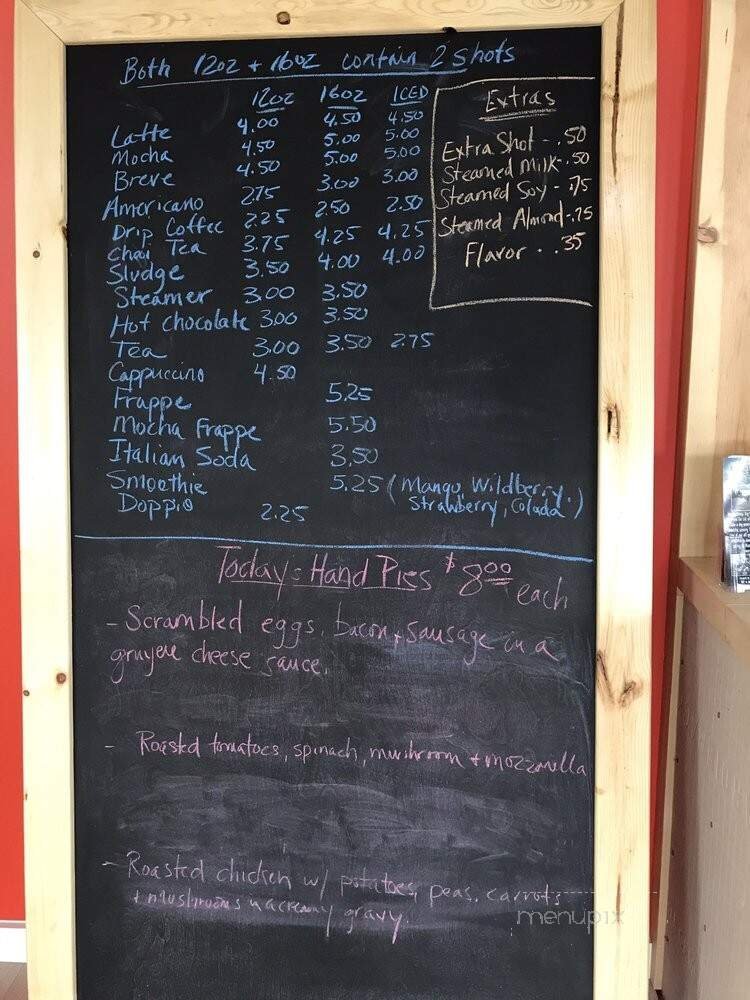 Both 12oz + 16oz contain 2 shots
12oz 16oz ICED
Latte 4.00 4.50 4.50
Mocha 4.50 5.00 5.00
Breve 4.50 5.00 5.00
Americano 2.75 3.00 3.00
Drip Coffee 2.25 2.50 2.50
Chai Tea 3.75 4.25 4.25
Sludge 3.50 4.00 4.00
Steamer 3.00 3.50
Hot chocolate 3.00 3.50
Tea 3.00 3.50 2.75
Cappuccino 4.50
Frappe 5.25
Mocha Frappe 5.50
Italian Soda 3.50
Smoothie 5.25 (Mango, Wildberry,
Strawberry, Colada)
Doppio 2.25
Extras
Extra Shot - .50
Steamed Milk - .50
Steamed Soy - .75
Steamed Almond - .75
Flavor . . .35
Today: Hand Pies $8.00 each
- Scrambled eggs, bacon + sausage in a
gruyere cheese sauce.
- Roasted tomatoes, spinach, mushroom + mozzarella
- Roasted chicken w/ potatoes, peas, carrots
+ mushrooms in a creamy gravy.
menupix